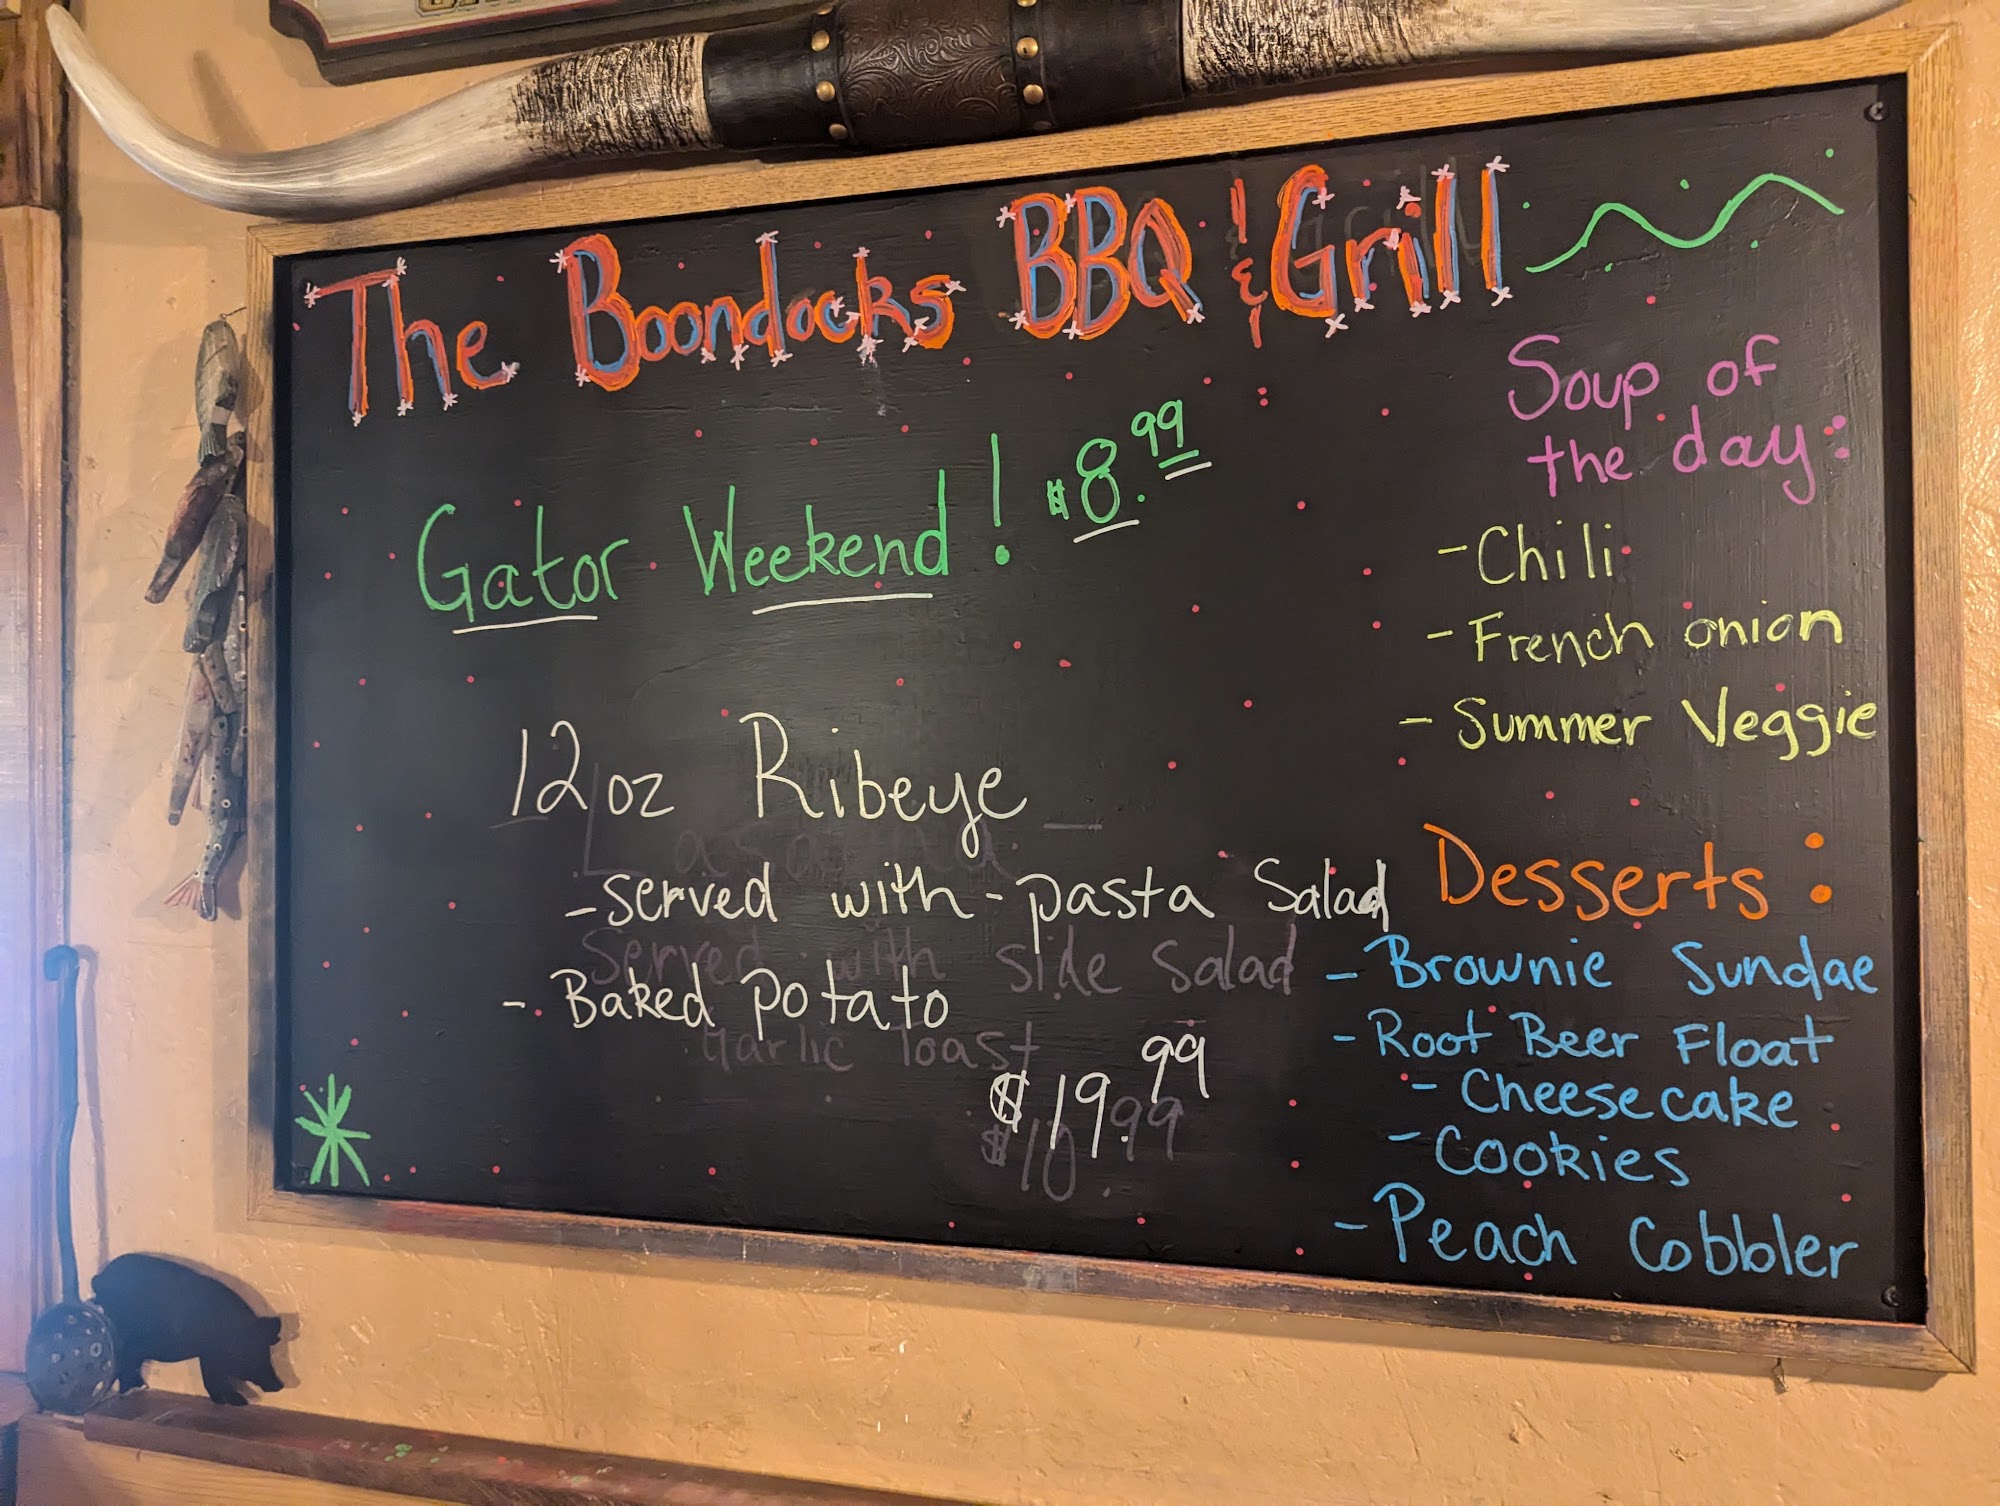 The Boondocks BBQ & Grill
Gator Weekend! $8.99
12oz Ribeye
-served with - pasta Salad
- Baked potato
$19.99
Lasagna
Served with side salad
Garlic Toast
$10.99
Soup of
the day:
- Chili
- French onion
- Summer Veggie
Desserts:
- Brownie Sundae
- Root Beer Float
- Cheesecake
- Cookies
- Peach Cobbler